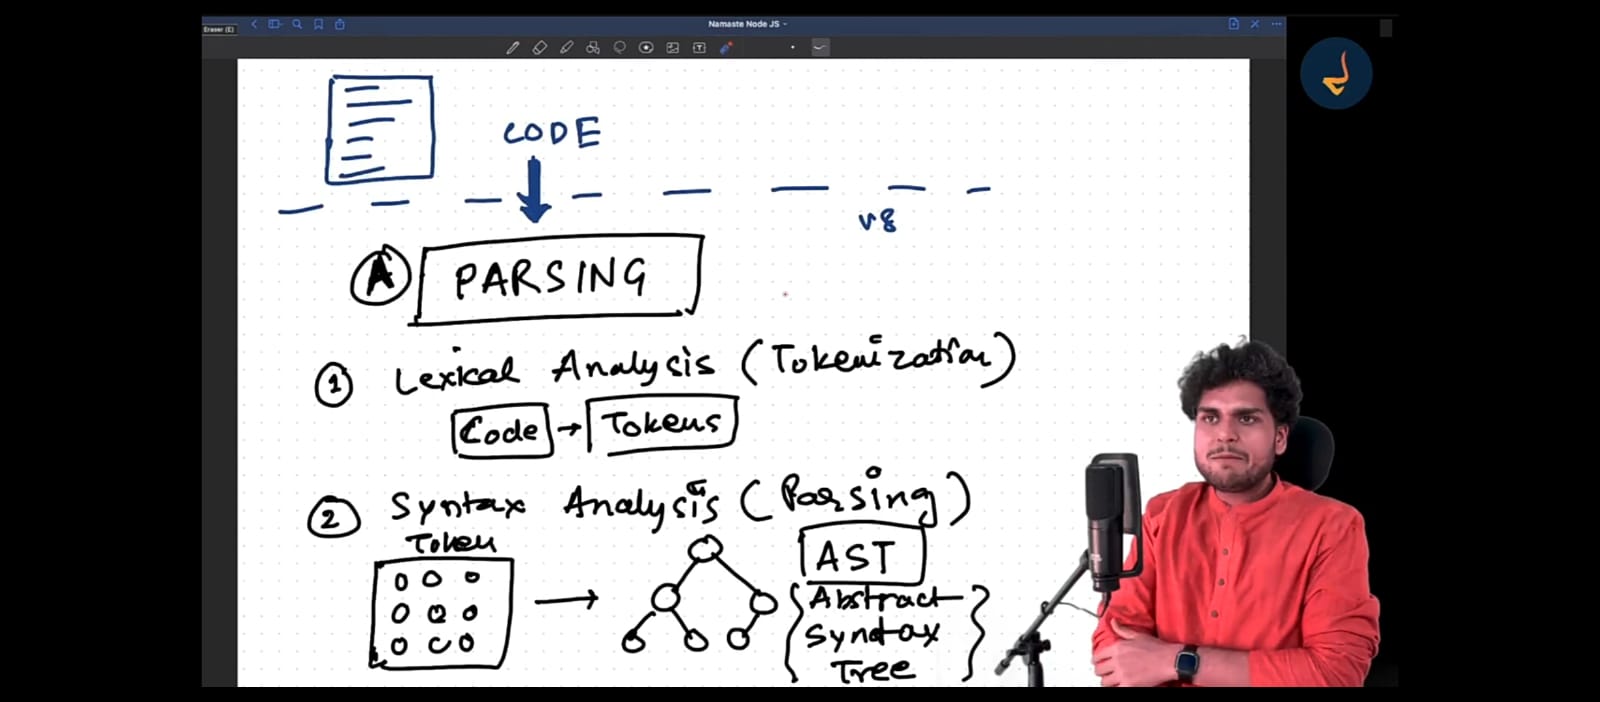 Namaste Node JS
Eraser (E)
CODE
v8
A PARSING
1 Lexical Analysis (Tokenization)
Code → Tokens
2 Syntax Analysis (Parsing)
Token
AST
{ Abstract
Syntax
Tree }